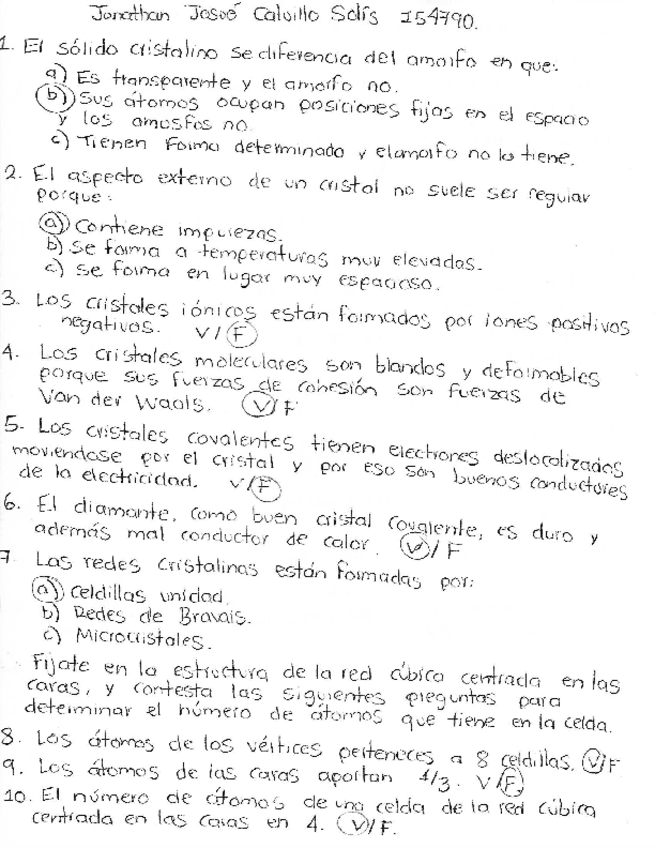 Jonathan Josué Calvillo Solís 154790.
1. El sólido cristalino se diferencia del amorfo en que:
a) Es transparente y el amorfo no.
b) Sus átomos ocupan posiciones fijas en el espacio
y los amosfos no
c) Tienen Forma determinada y el amorfo no la tiene.
2. El aspecto externo de un cristal no suele ser regular
porque:
a) Contiene impurezas.
b) Se forma a temperaturas muy elevadas.
c) Se forma en lugar muy espacioso.
3. Los cristales iónicos están formados por iones positivos
negativos. V/F
4. Los cristales moleculares son blandos y deformables
porque sus fuerzas de cohesión son fuerzas de
Van der Waals. V/F
5. Los cristales covalentes tienen electrones deslocalizados
moviendose por el cristal y por eso son buenos conductores
de la electricidad. V/F
6. El diamante, como buen cristal covalente, es duro y
además mal conductor de calor. V/F
7. Las redes Cristalinas están formadas por:
a) Celdillas unidad.
b) Redes de Bravais.
c) Microcristales.
Fijate en la estructura de la red cúbica centrada en las
caras, y contesta las siguientes preguntas para
determinar el número de átomos que tiene en la celda.
8. Los átomos de los vértices perteneces a 8 celdillas. V/F
9. Los átomos de las caras aportan 1/3. V/F
10. El número de átomos de una celda de la red cúbica
centrada en las caras en 4. V/F.